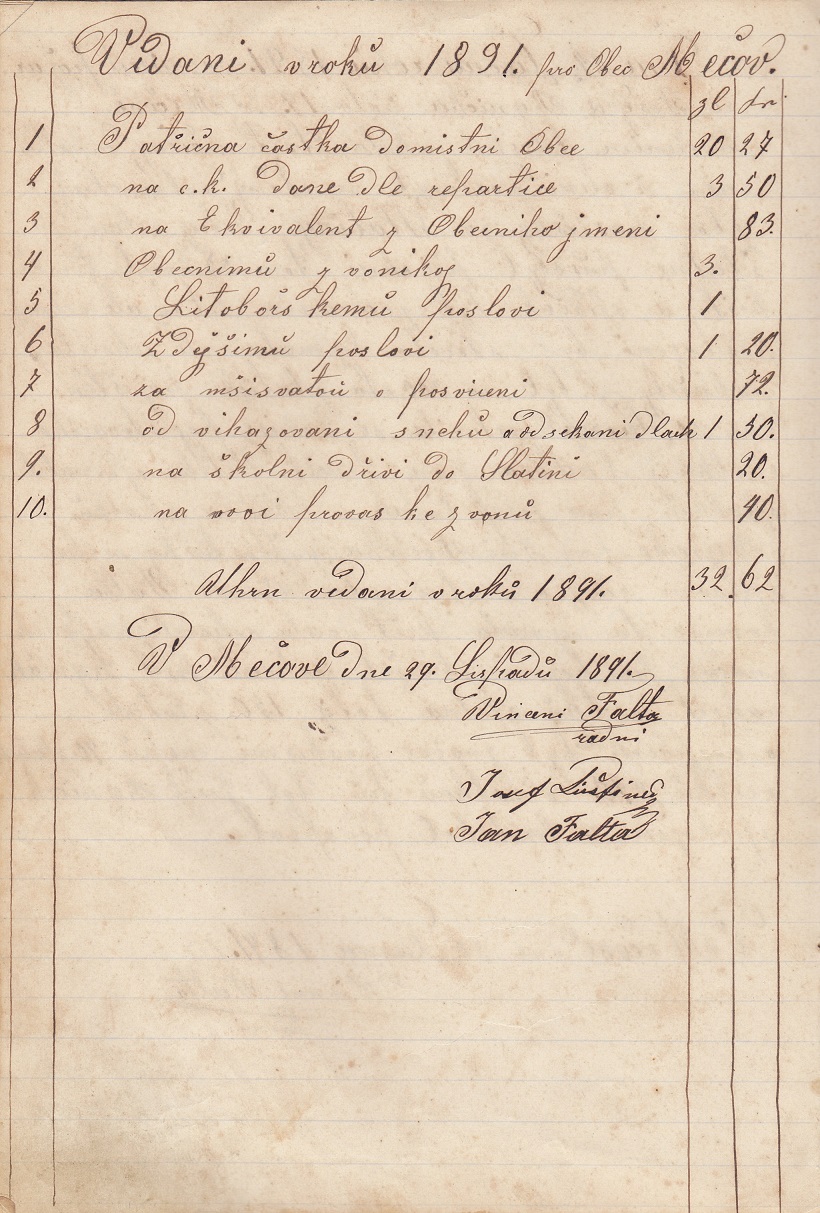 Vidani v roků 1891. pro Obec Mečov.
zl kr
1 Patřična částka domistni Obce 20 27
2 na c.k. Dane Dle repartice 3 50
3 na Ekvivalent z Obecniho jmeni 83.
4 Obecnimů zvonikoj 3.
5 Litoborškemů poslovi 1
6 Zdejšimů poslovi 1 20.
7 za mši svatou o posviceni 72.
8 od vihazovani snehů a odsekani dlach 1 50.
9. na školni dřivi do Slatini 20.
10. na novi provas ke zvonů 40.
Uhrn vidani v roků 1891. 32. 62
V Mečove Dne 29. Listopadů 1891.
Vincenc Falta
radni
Josef
Jan Falta